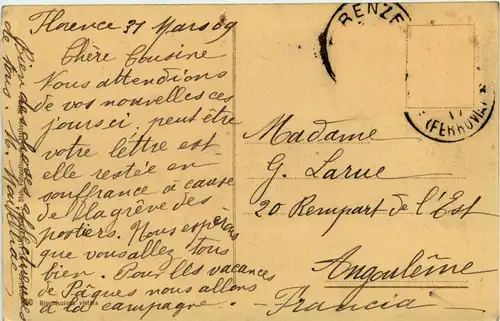 Florence 31 Mars 09
Chère Cousine
Nous attendions
de vos nouvelles ces
jours ci, peut être
votre lettre est-
elle restée en
souffrance à cause
de la grève des
postiers. Nous espérons
que vous allez tous
bien. Pour les vacances
de Pâques nous allons
à la campagne.
Bien des
de tous. M.
RENZE
(FERROVIA)
Madame
G. Larue
20 Rempart de l'Est
Angoulême
Francia